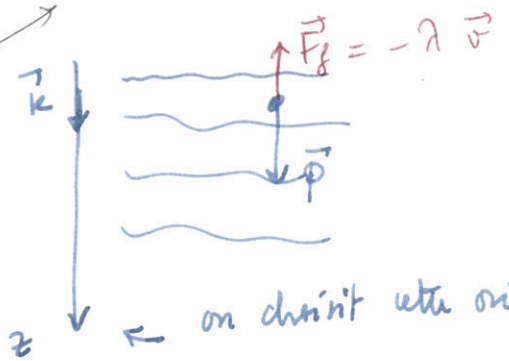 F⃗_f = - λ v⃗
k⃗
P⃗
z ← on choisit cette